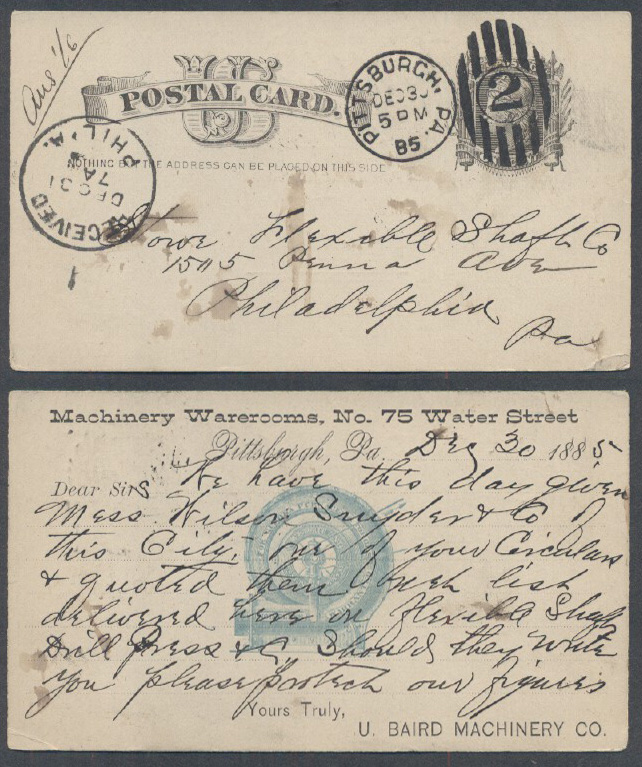 Ans 1/6
US
POSTAL CARD.
NOTHING BUT THE ADDRESS CAN BE PLACED ON THIS SIDE
PITTSBURGH, PA.
DEC 30
5 PM
85
2
RECEIVED PHIL'A.
DEC 31
7 AM
1
Stowe Flexible Shaft Co
1505 Penna Ave
Philadelphia
Pa
Machinery Warerooms, No. 75 Water Street
Pittsburgh, Pa. Dec 30 1885
Dear Sirs We have this day given
Mess. Wilson Snyder & Co of
this City, one of your Circulars
& quoted them list
delivered here on flexible Shaft
Drill Press &c Should they write
you please protect our figures
Yours Truly,
U. BAIRD MACHINERY CO.